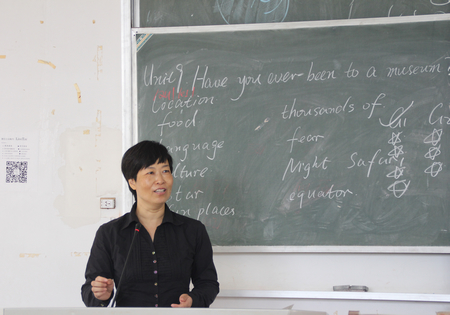 Unit 9 Have you ever been to a museum?
Location
food
language
places
thousands of
fear
Night Safari
equator